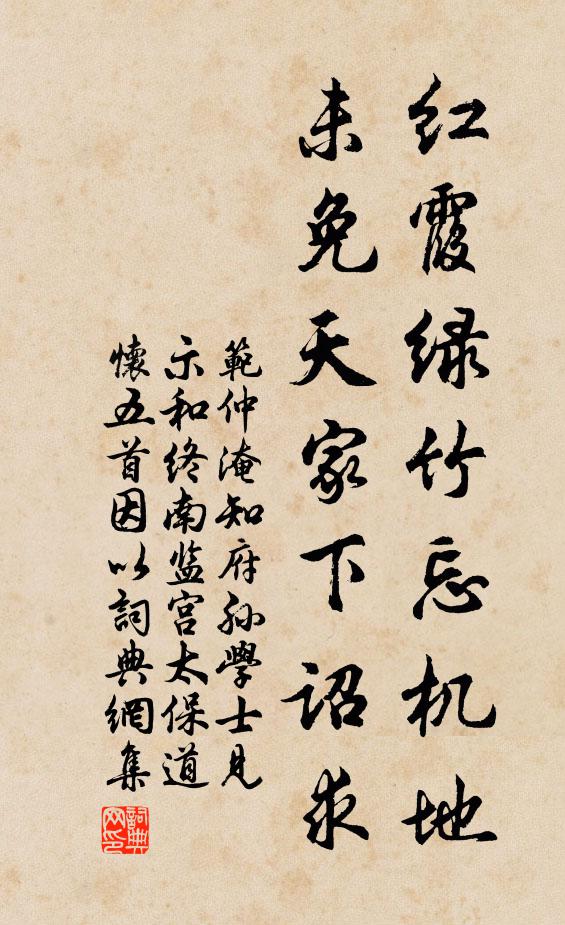 红霞绿竹忘机地
未免天家下诏求
範仲淹知府孙學士見
示和终南监宫太保道
懷五首因以詞典網集
詞典
网印